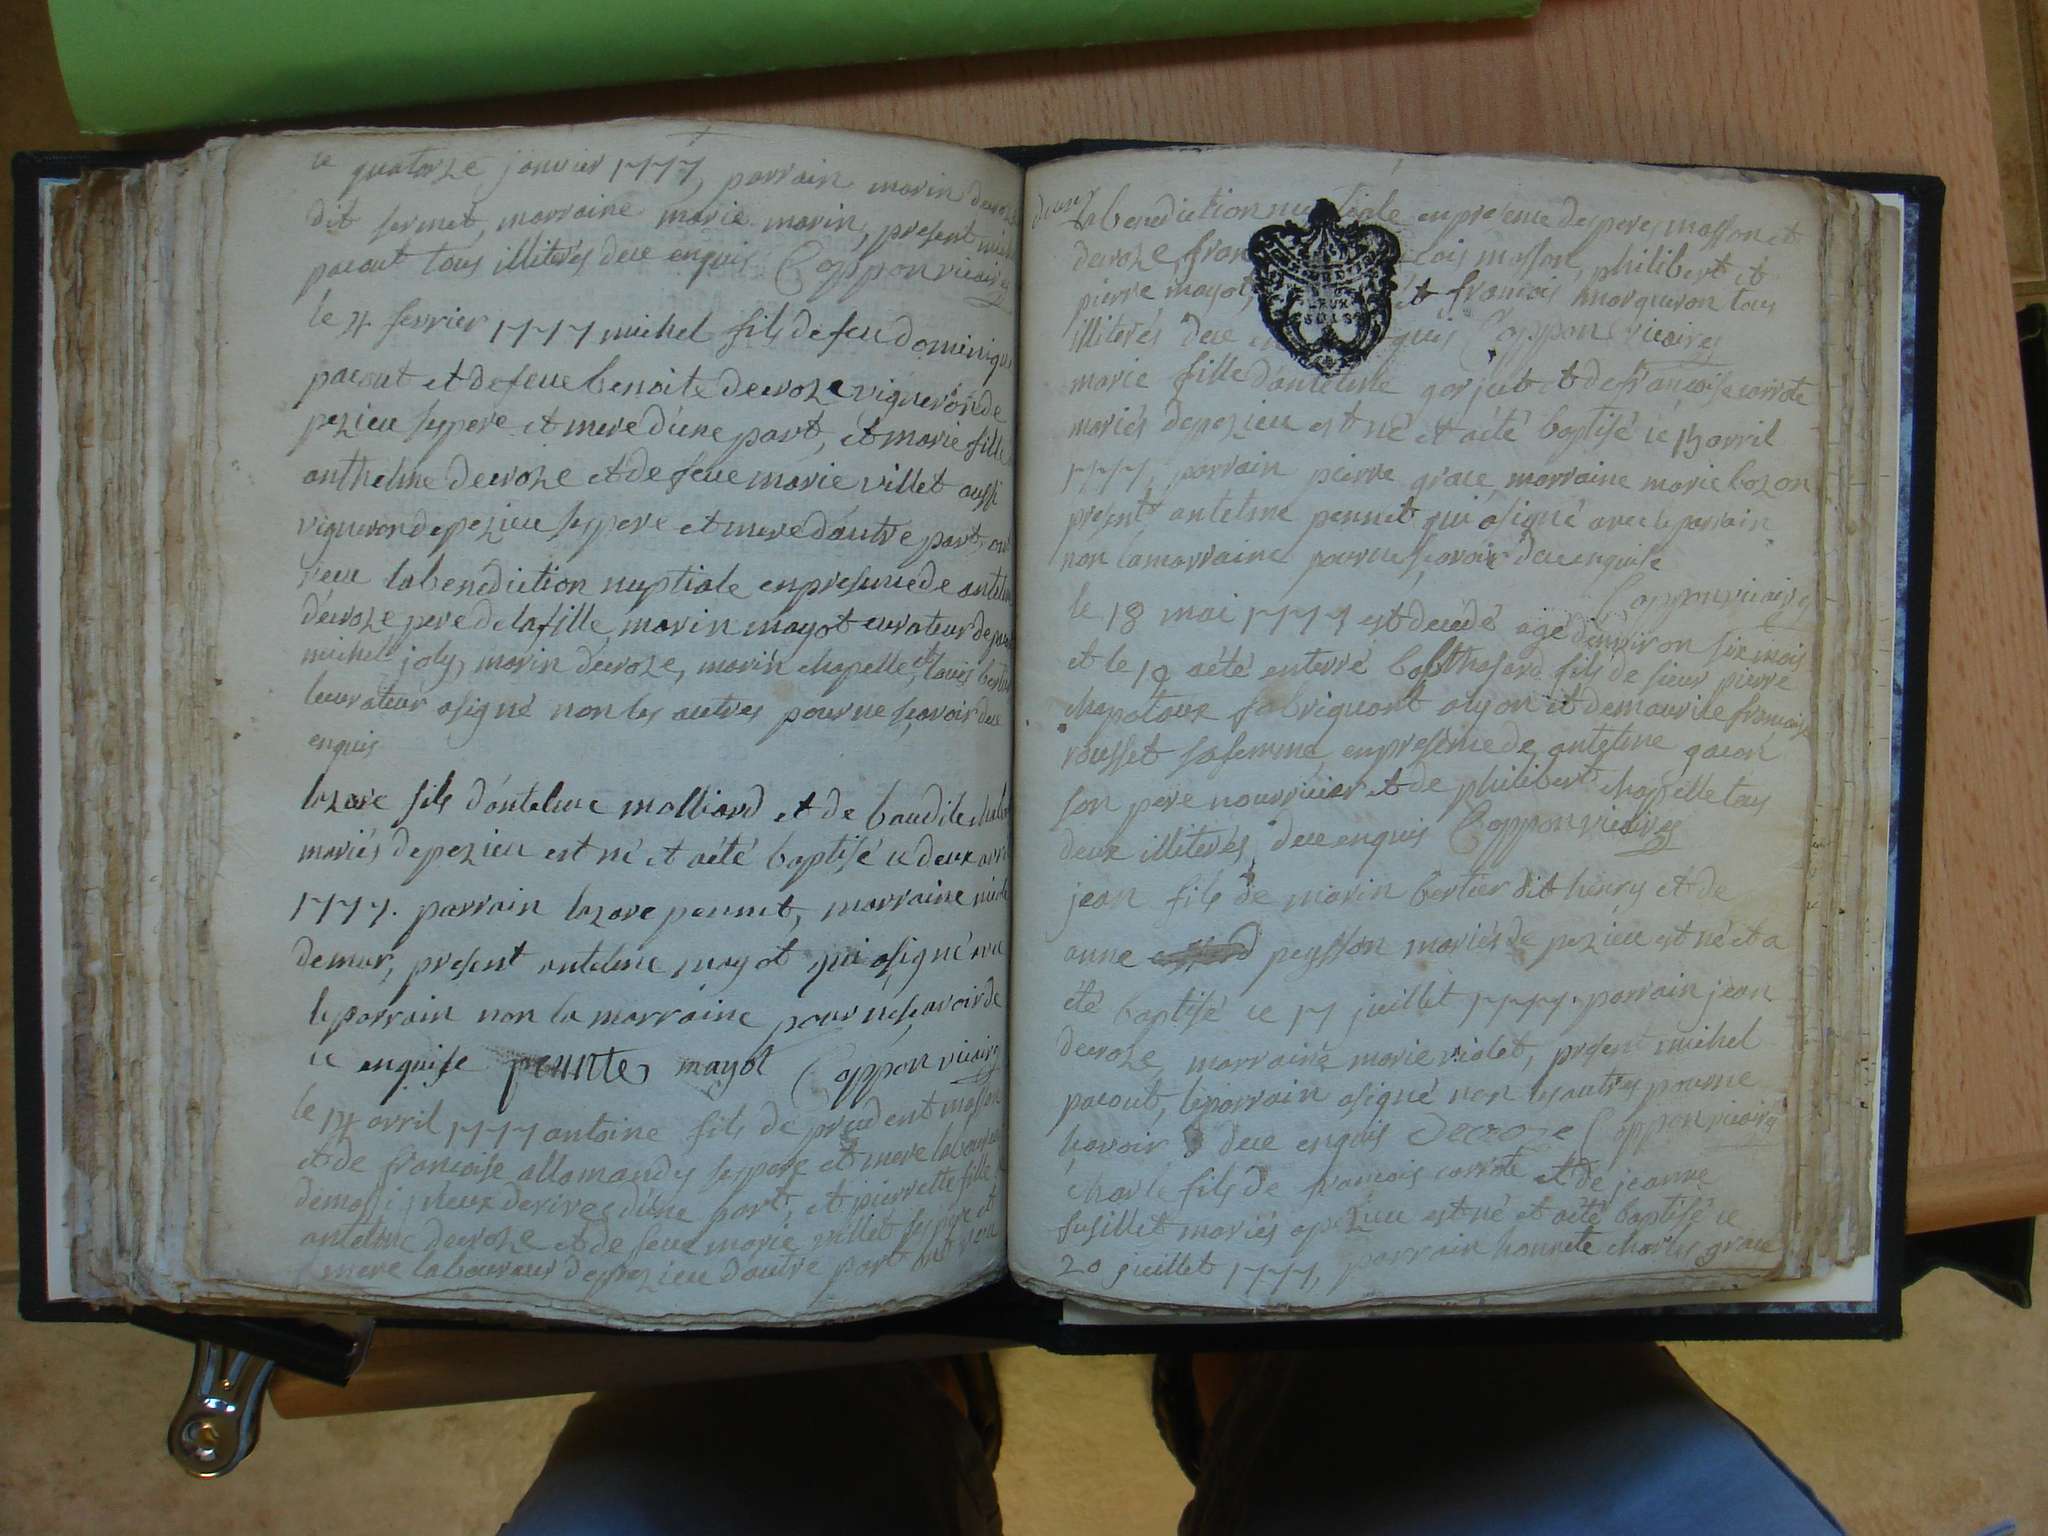 ce quatorze janvier 1777, parrain marin decroze
dit fermet, marraine marie marin, present michel
pacout tous illiterés dece enquis Coppon vicaire
le 4 fevrier 1777 michel fils de feu dominique
pacout et de feue benoite decroze vigneron de
pezieu ses pere et mere d'une part, et marie fille
anthelme decroze et de feue marie villet aussi
vigneron de pezieu ses pere et mere d'autre part, ont
receu la benediction nuptiale en presence de antelme
decroze pere de la fille, marin mayot curateur de
michel joly, marin decroze, marin chapelle, et louis
le curateur a signé non les autres pour ne scavoir dece
enquis
lazare fils d'antelme molliard et de baudile
mariés de pezieu est né et a été baptisé ce deux avril
1777. parrain lazare pennet, marraine
demar, present antelme mayot qui a signé avec
le parrain non la marraine pour ne scavoir de
ce enquise mayot Coppon vicaire
le 14 avril 1777 antoine fils de prudent masson
et de francoise allomand ses pere et mere laboureur
de ses pere et mere d'une part, et pierrette fille
antelme decroze et de feue marie villet ses pere et
mere laboureur de pezieu d'autre part ont receu
la benediction nuptiale en presence des peres masson et
decroze, masson, philibert et
pierre mayot, et francois morgueron tous
illiterés dece enquis Coppon vicaire
marie fille d'antelme gorjut et de francoise corrote
mariés de pezieu est né et a été baptisé ce 13 avril
1777, parrain pierre grace, marraine marie bozon
present antelme pennet qui a signé avec le parrain
non la marraine pour ne scavoir dece enquise
Coppon vicaire
le 18 mai 1777 est decedé agé d'environ six mois
et le 19 a été enterré balthasard fils de sieur pierre
chapotoux fabriquant a lyon et demoiselle francoise
rousset sa femme, en presence de antelme gacon
son pere nourricier et de philibert chapelle tous
deux illiterés, dece enquis Coppon vicaire
jean fils de marin bertier dit henry et de
anne peysson mariés de pezieu est né et a
été baptisé ce 17 juillet 1777. parrain jean
decroze, marraine marie violet, present michel
pacout, le parrain a signé non les autres pour ne
scavoir dece enquis Decroze Coppon vicaire
charle fils de francois corrote et de jeanne
fusillet mariés a pezieu est né et a été baptisé ce
20 juillet 1777, parrain honnete charles grace